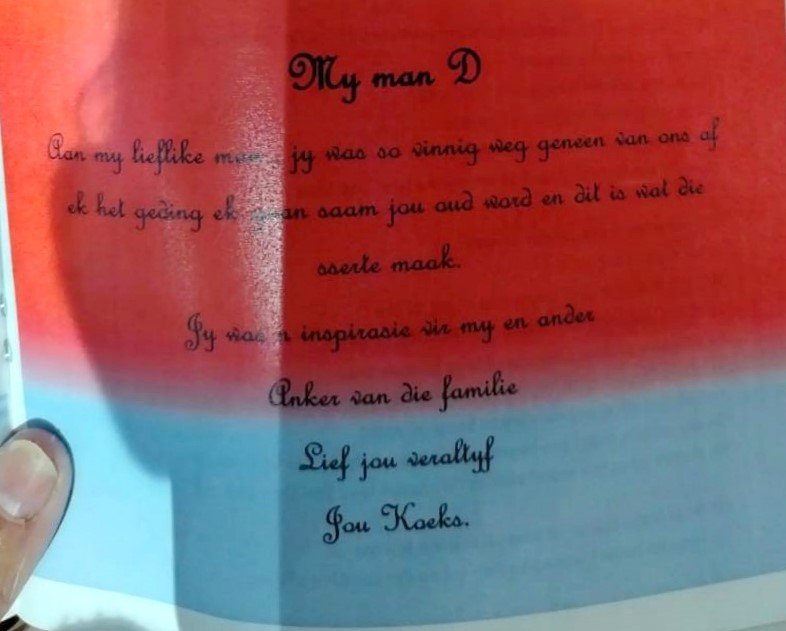 My man D
Aan my lieflike man : jy was so vinnig weg geneen van ons af
ek het geding ek gaan saam jou oud word en dit is wat die
sserte maak.
Jy was n inspirasie vir my en ander
Anker van die familie
Lief jou veraltyf
Jou Koeks.